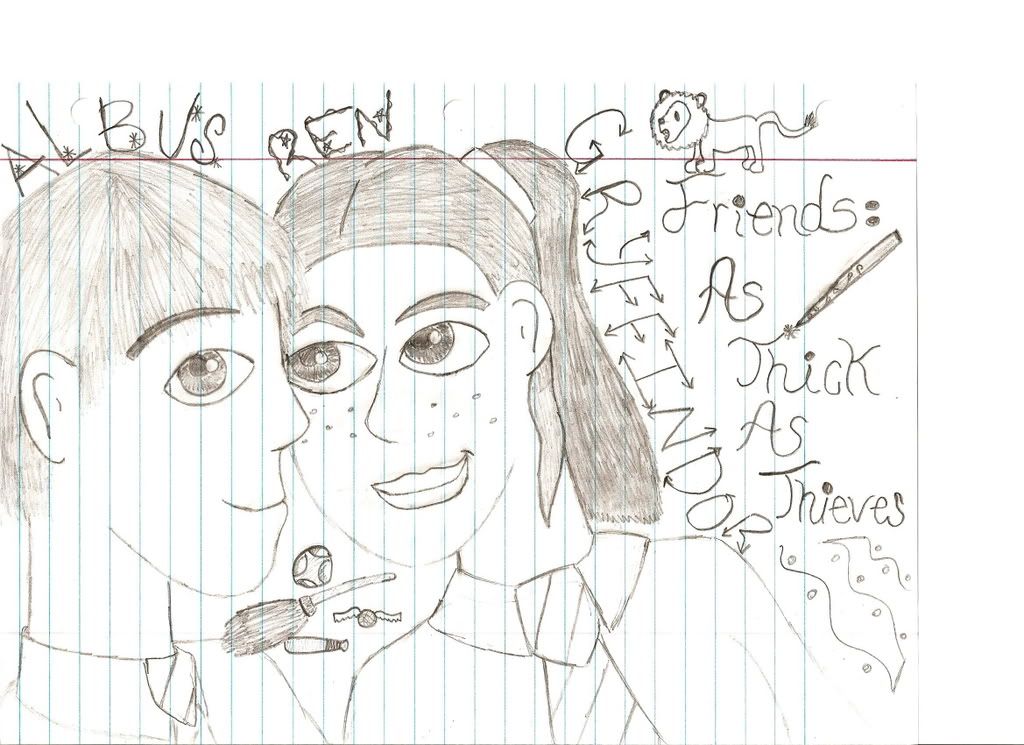 ALBUS PEN
GRYFFINDOR
Friends:
As
Thick
As
Thieves